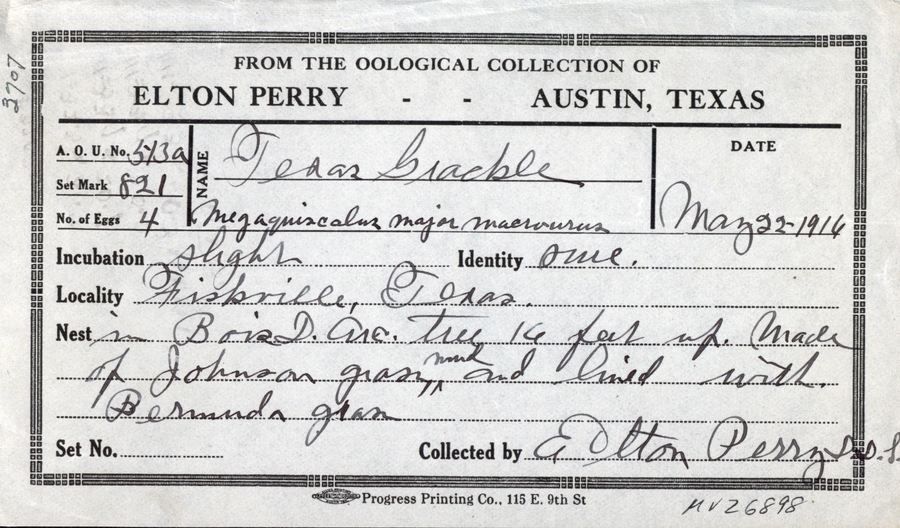 3707
FROM THE OOLOGICAL COLLECTION OF
ELTON PERRY - - AUSTIN, TEXAS
A. O. U. No. 513a
NAME
Texas Grackle
DATE
Set Mark 821
No. of Eggs 4
Megaquiscalus major macrourus
May 22-1916
Incubation slight
Identity sure.
Locality Fiskville, Texas.
Nest in Bois D. Arc. tree 16 feet up. Made
of Johnson grass, mud and lined with.
Bermuda grass
Set No.
Collected by Elton Perry
Progress Printing Co., 115 E. 9th St
MVZ6898